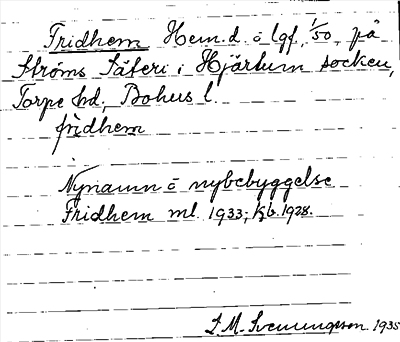 Fridhem Hem.d. å lgf. 1/50 på
Ströms Säteri i Hjärtum socken,
Torpe hd, Bohus l.
fridhem
Nynamn å nybebyggelse
Fridhem ml. 1933; Kjb. 1928.
S. M. Svenungsson 1935